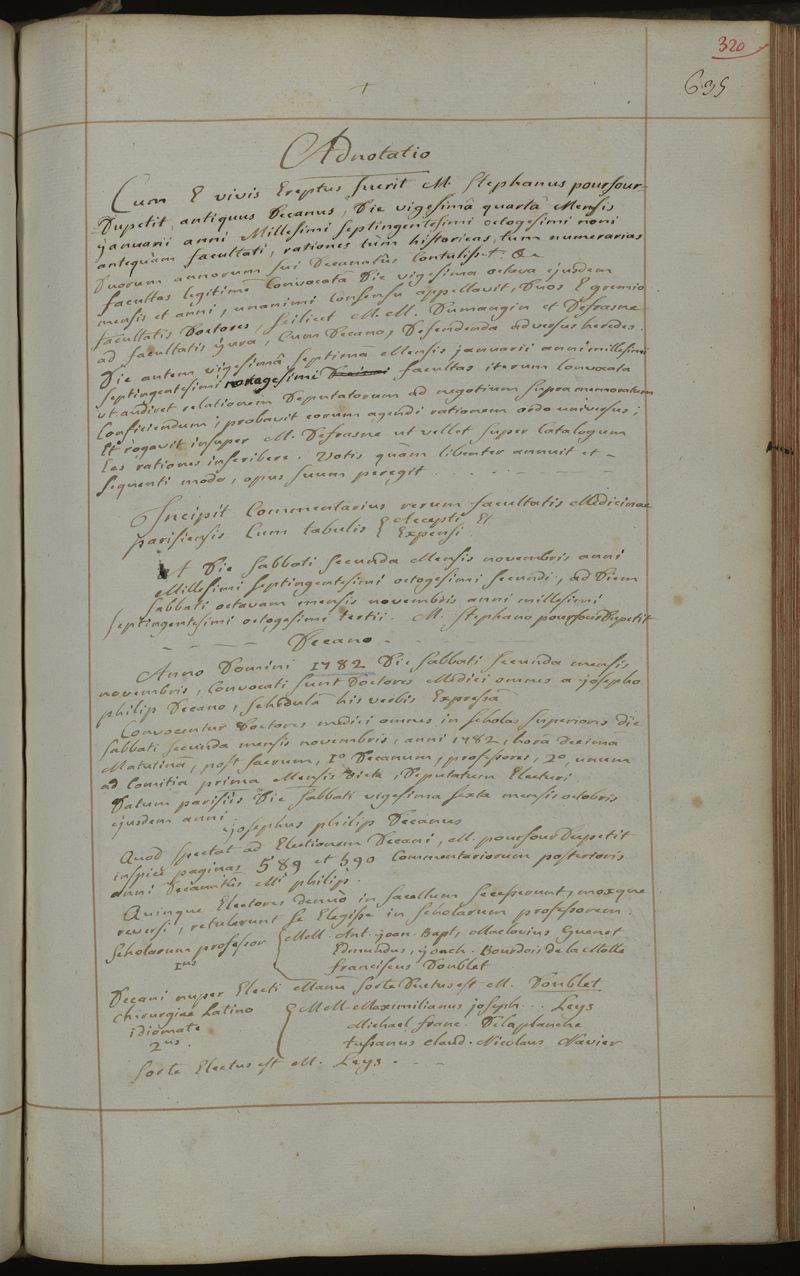 320
635
Adnotatio
Cum E vivis Ereptus fuerit M. Stephanus pourfour-
Dupetit, antiquus Decanus, Die vigesimâ quartâ Mensis
januarii anni Millesimi septingentesimi octogesimi noni
antequàm facultati, rationes tum historicas, tum numerarias
Duorum annorum sui Decanatûs Contulisset. &a
facultas legitimè Convocata Die vigesima octava ejusdem
mensis et anni, unanimi Consensu appellavit, Duos E gremio
facultatis Doctores, scilicet M.M. Dumangin et Defrasne
ad facultatis jura, Cum Decano, Defendenda adversus heredes.
Die autem vigesimâ septimâ Mensis januarii anni millesimi
septingentesimi nonagesimi facultas iterum Convocata
ut audiret relationem Deputatorum ad negotium supra memoratum
Conficiendum; probavit eorum agendi rationem ordo universus;
Et rogavit insuper M. Defrasne ut vellet super Catalogum
Eas rationes inscribere. Votis quàm libenter annuit et -
sequenti modo, opus suum peregit
Incipit Commentarius rerum facultatis Medicinae
parisiensis Cum tabulis { Accepti Et
Expensi
A Die sabbati secunda Mensis novembris anni
Millesimi septingentesimi octogesimi secundi, ad Diem
sabbati octavam mensis novembris anni millesimi
septingentesimi octogesimi tertii. M. Stephano pourfour Dupetit
Decano.
Anno Domini 1782 Die sabbati secunda mensis
novembris, Convocati sunt Doctores Medici omnes a josepho
philip Decano, schedulâ his verbis Expressâ
Convocentur Doctores medici omnes in scholas superiores die
sabbati secunda mensis novembris, anni 1782, horâ Decima
Matutinâ, post sacrum, 1o Decanum, professores, 2o, unum
ad Comitia prima Mensis Dicta, Deputatum Electuri
Datum parisiis Die sabbati vigesima sexta mensis octobris
ejusdem anni
josephus philip Decanus
Quod spectat ad Electionem Decani, M. pourfour Dupetit
inspice paginas 589 et 590 Commentariorum posterioris
anni Decanatûs Mi philip.
Quinque Electores Denuò in sacellum secesserunt, moxque
reversi, retulerunt se Elegisse in scholarum professorem.
Scholarum professor { MM. Ant. joan. Bapt. Maclovius Guenet
1us Edmundus, joach. Bourdois de la Motte
franciscus Doublet
Decani nuper Electi Manu sorte Ductus est M. Doublet.
Chirurgiae Latino { MM. Maximilianus joseph... Leys
idiomate Michael franc. Delaplanche
2us. tussanus Claud. Nicolaus Navier
sorte Electus est M. Leys.